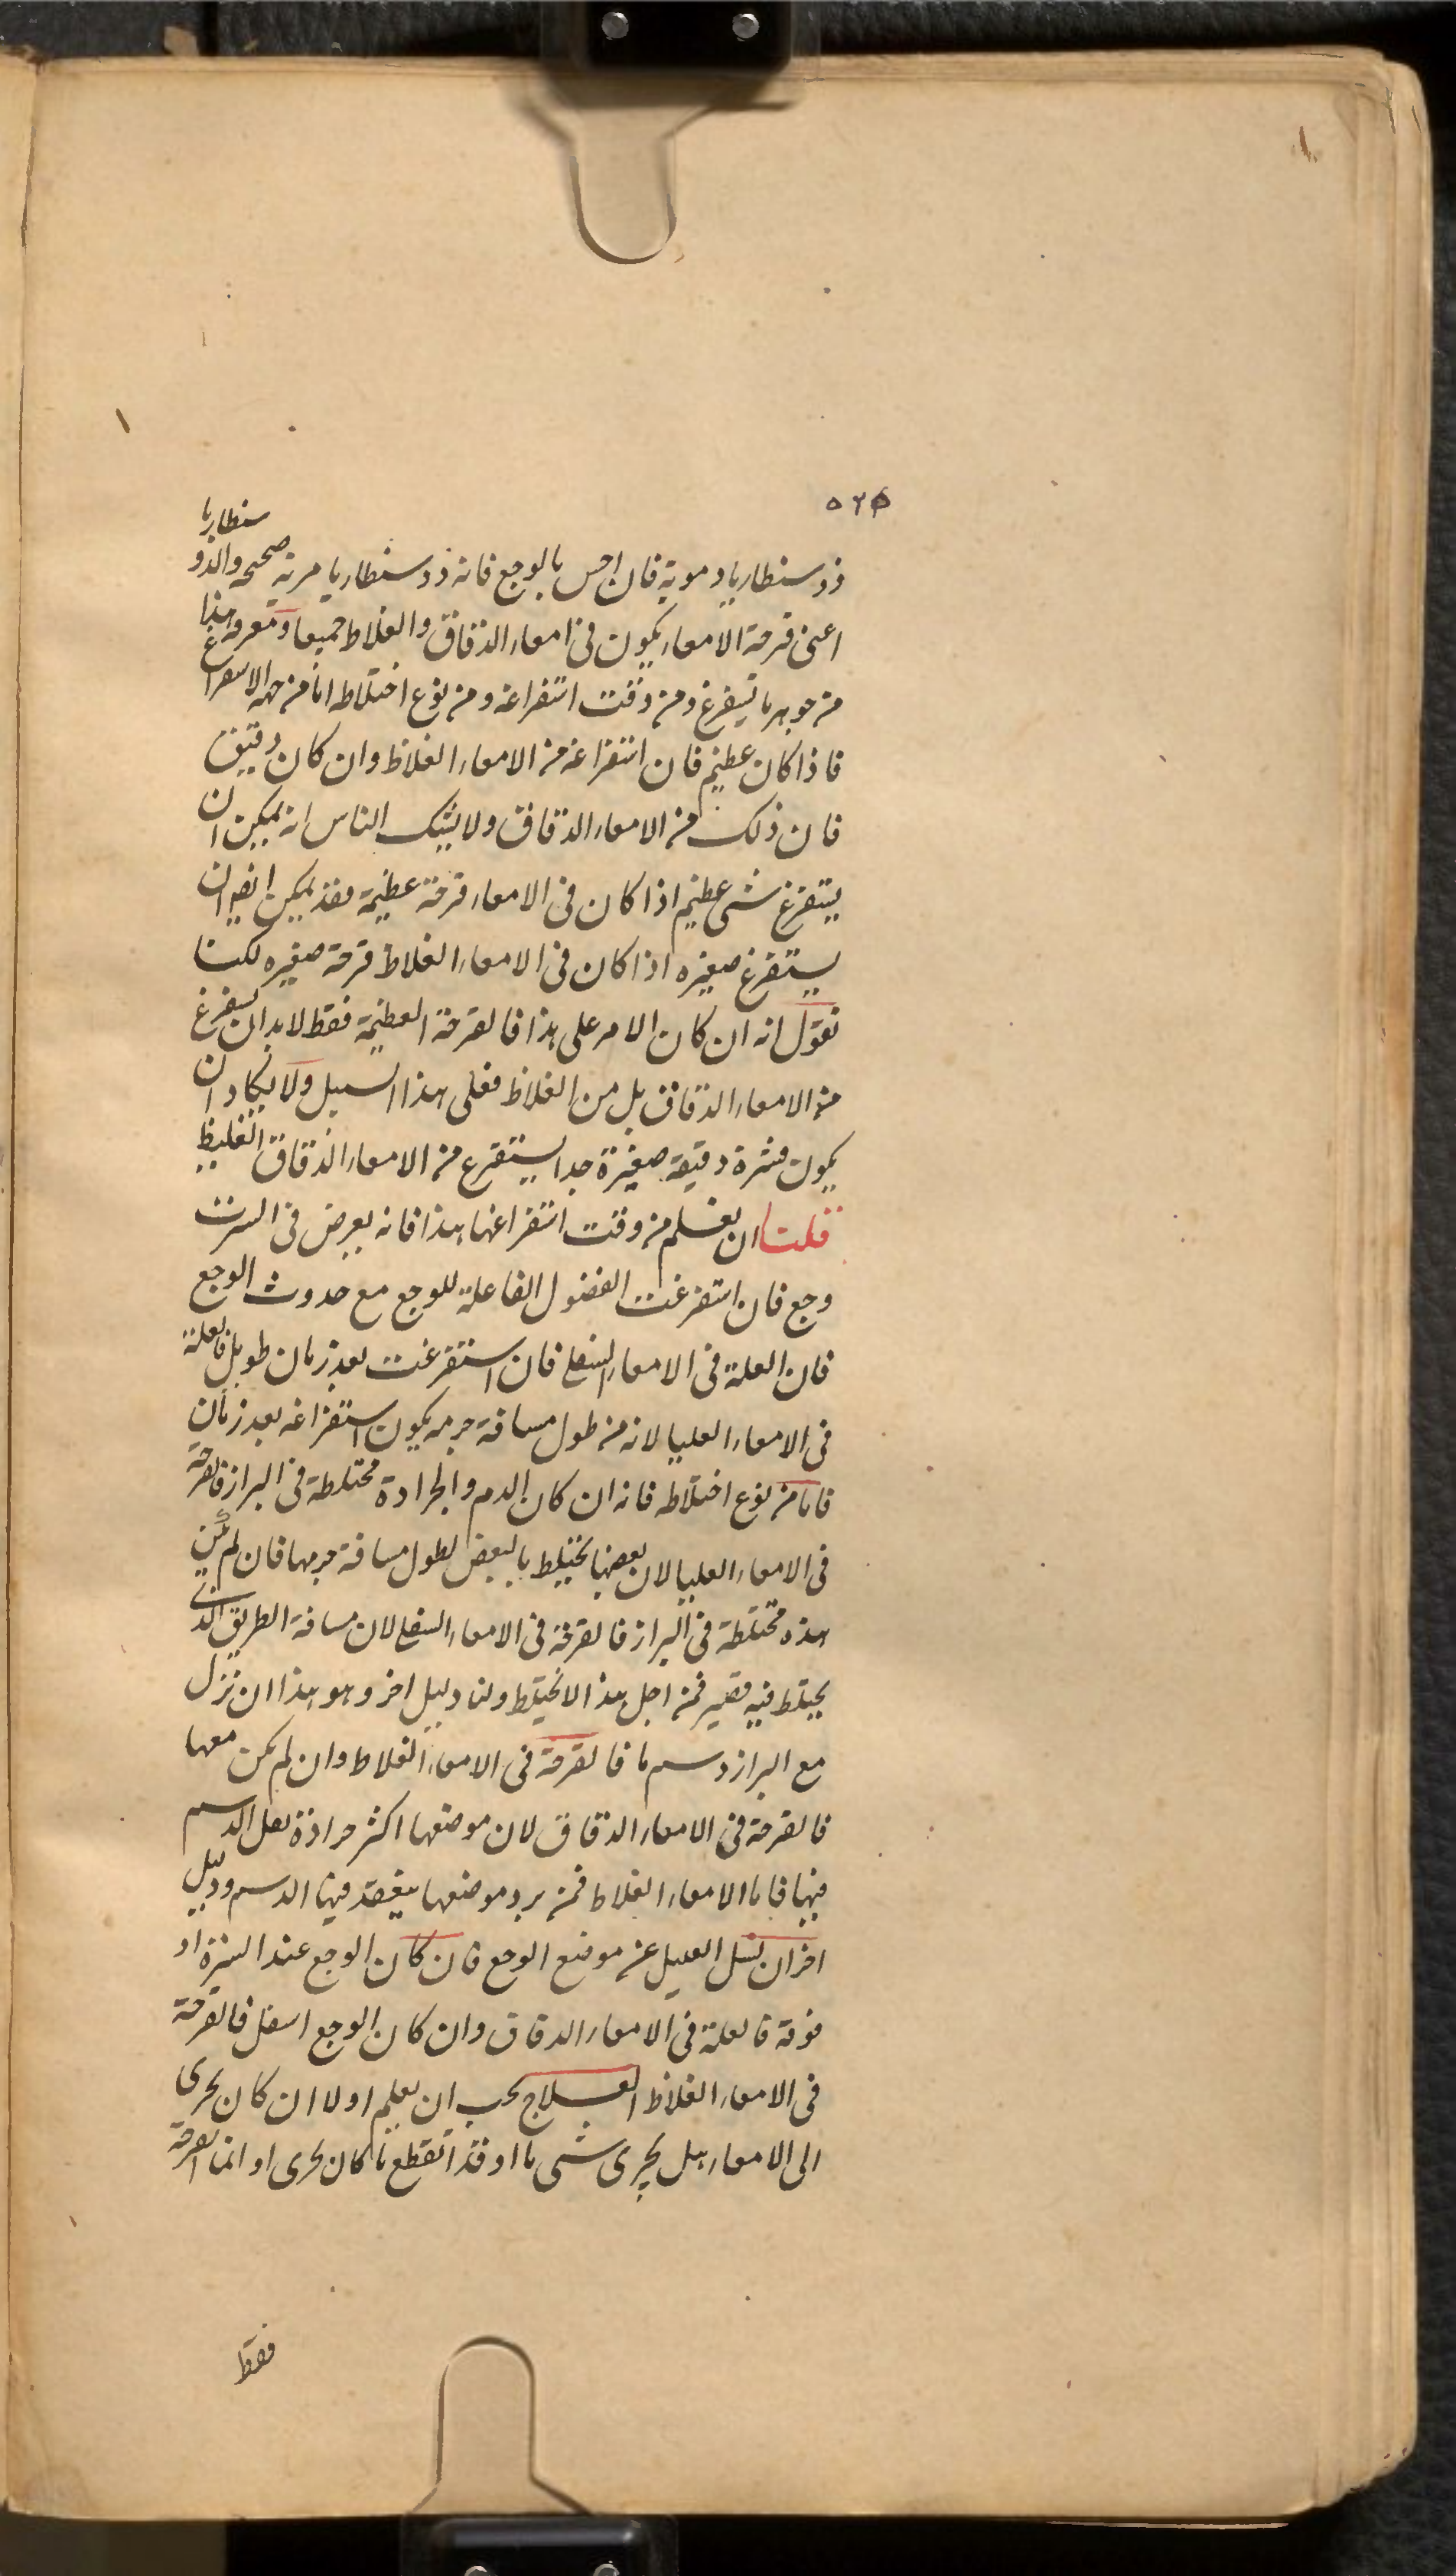 ٥٢٥
سنطاريا
ذوسنطاريا دموية فان احس بالوجع فانه ذوسنطاريا مرية صحيحه والذو
اعنى قرحة الامعاء يكون فى امعاء الدقاق والغلاظ جميعا ومعرفة هذا
من جوهر ما يستفرغ ومن وقت استفراغه ومن نوع اختلاطه اما من جهة الاستفراغ
فاذا كان عظيم فان استفراغه من الامعاء الغلاظ وان كان دقيق
فان ذلك من الامعاء الدقاق ولا يشك الناس انه يمكن ان
يستفرغ شى عظيم اذا كان فى الامعاء قرحة عظيمة فقد يمكن ايضا ان
يستفرغ صغيره اذا كان فى الامعاء الغلاظ قرحة صغيره لكنا
نقول انه ان كان الامر على هذا فالقرحة العظيمة فقط لابد ان يستفرغ
من الامعاء الدقاق بل من الغلاظ فعلى هذا السبيل ولا يكاد ان
يكون قشرة دقيقة صغيرة جدا يستفرغ من الامعاء الدقاق الغليظ
قلت ان يعلم من وقت استفراغها هذا فانه يعرض فى السرت
وجع فان استفرغت الفضول الفاعلة للوجع مع حدوث الوجع
فان العلة فى الامعاء السفلى فان استفرغت بعد زمان طويل فالعلة
فى الامعاء العليا لانه من طول مسافة جرمه يكون استفراغه بعد زمان
فاما من نوع اختلاطه فانه ان كان الدم والجرادة مختلطة فى البراز فالقرحة
فى الامعاء العليا لان بعضها يختلط بالبعض لطول مسافة جرمها فان لم يكن
هذه مختلطة فى البراز فالقرحة فى الامعاء السفلى لان مسافة الطريق الذى
يختلط فيه قصير فمن اجل هذا لا يختلط ولنا دليل اخر وهو هذا ان نزل
مع البراز دسم ما فالقرحة فى الامعاء الغلاظ وان لم يكن معها
فالقرحة فى الامعاء الدقاق لان موضعها اكثر حرارة لعل الدسم
فيها فاما الامعاء الغلاظ فمن برد موضعها ينعقد فيها الدسم ودليل
اخر ان نسل العليل عن موضع الوجع فان كان الوجع عند السرة او
فوقه فالعلة فى الامعاء الدقاق وان كان الوجع اسفل فالقرحة
فى الامعاء الغلاظ العلاج يجب ان يعلم اولا ان كان يجرى
الى الامعاء هل يجرى شى ما او قد انقطع ما كان يجرى او انما القرحة
فقط